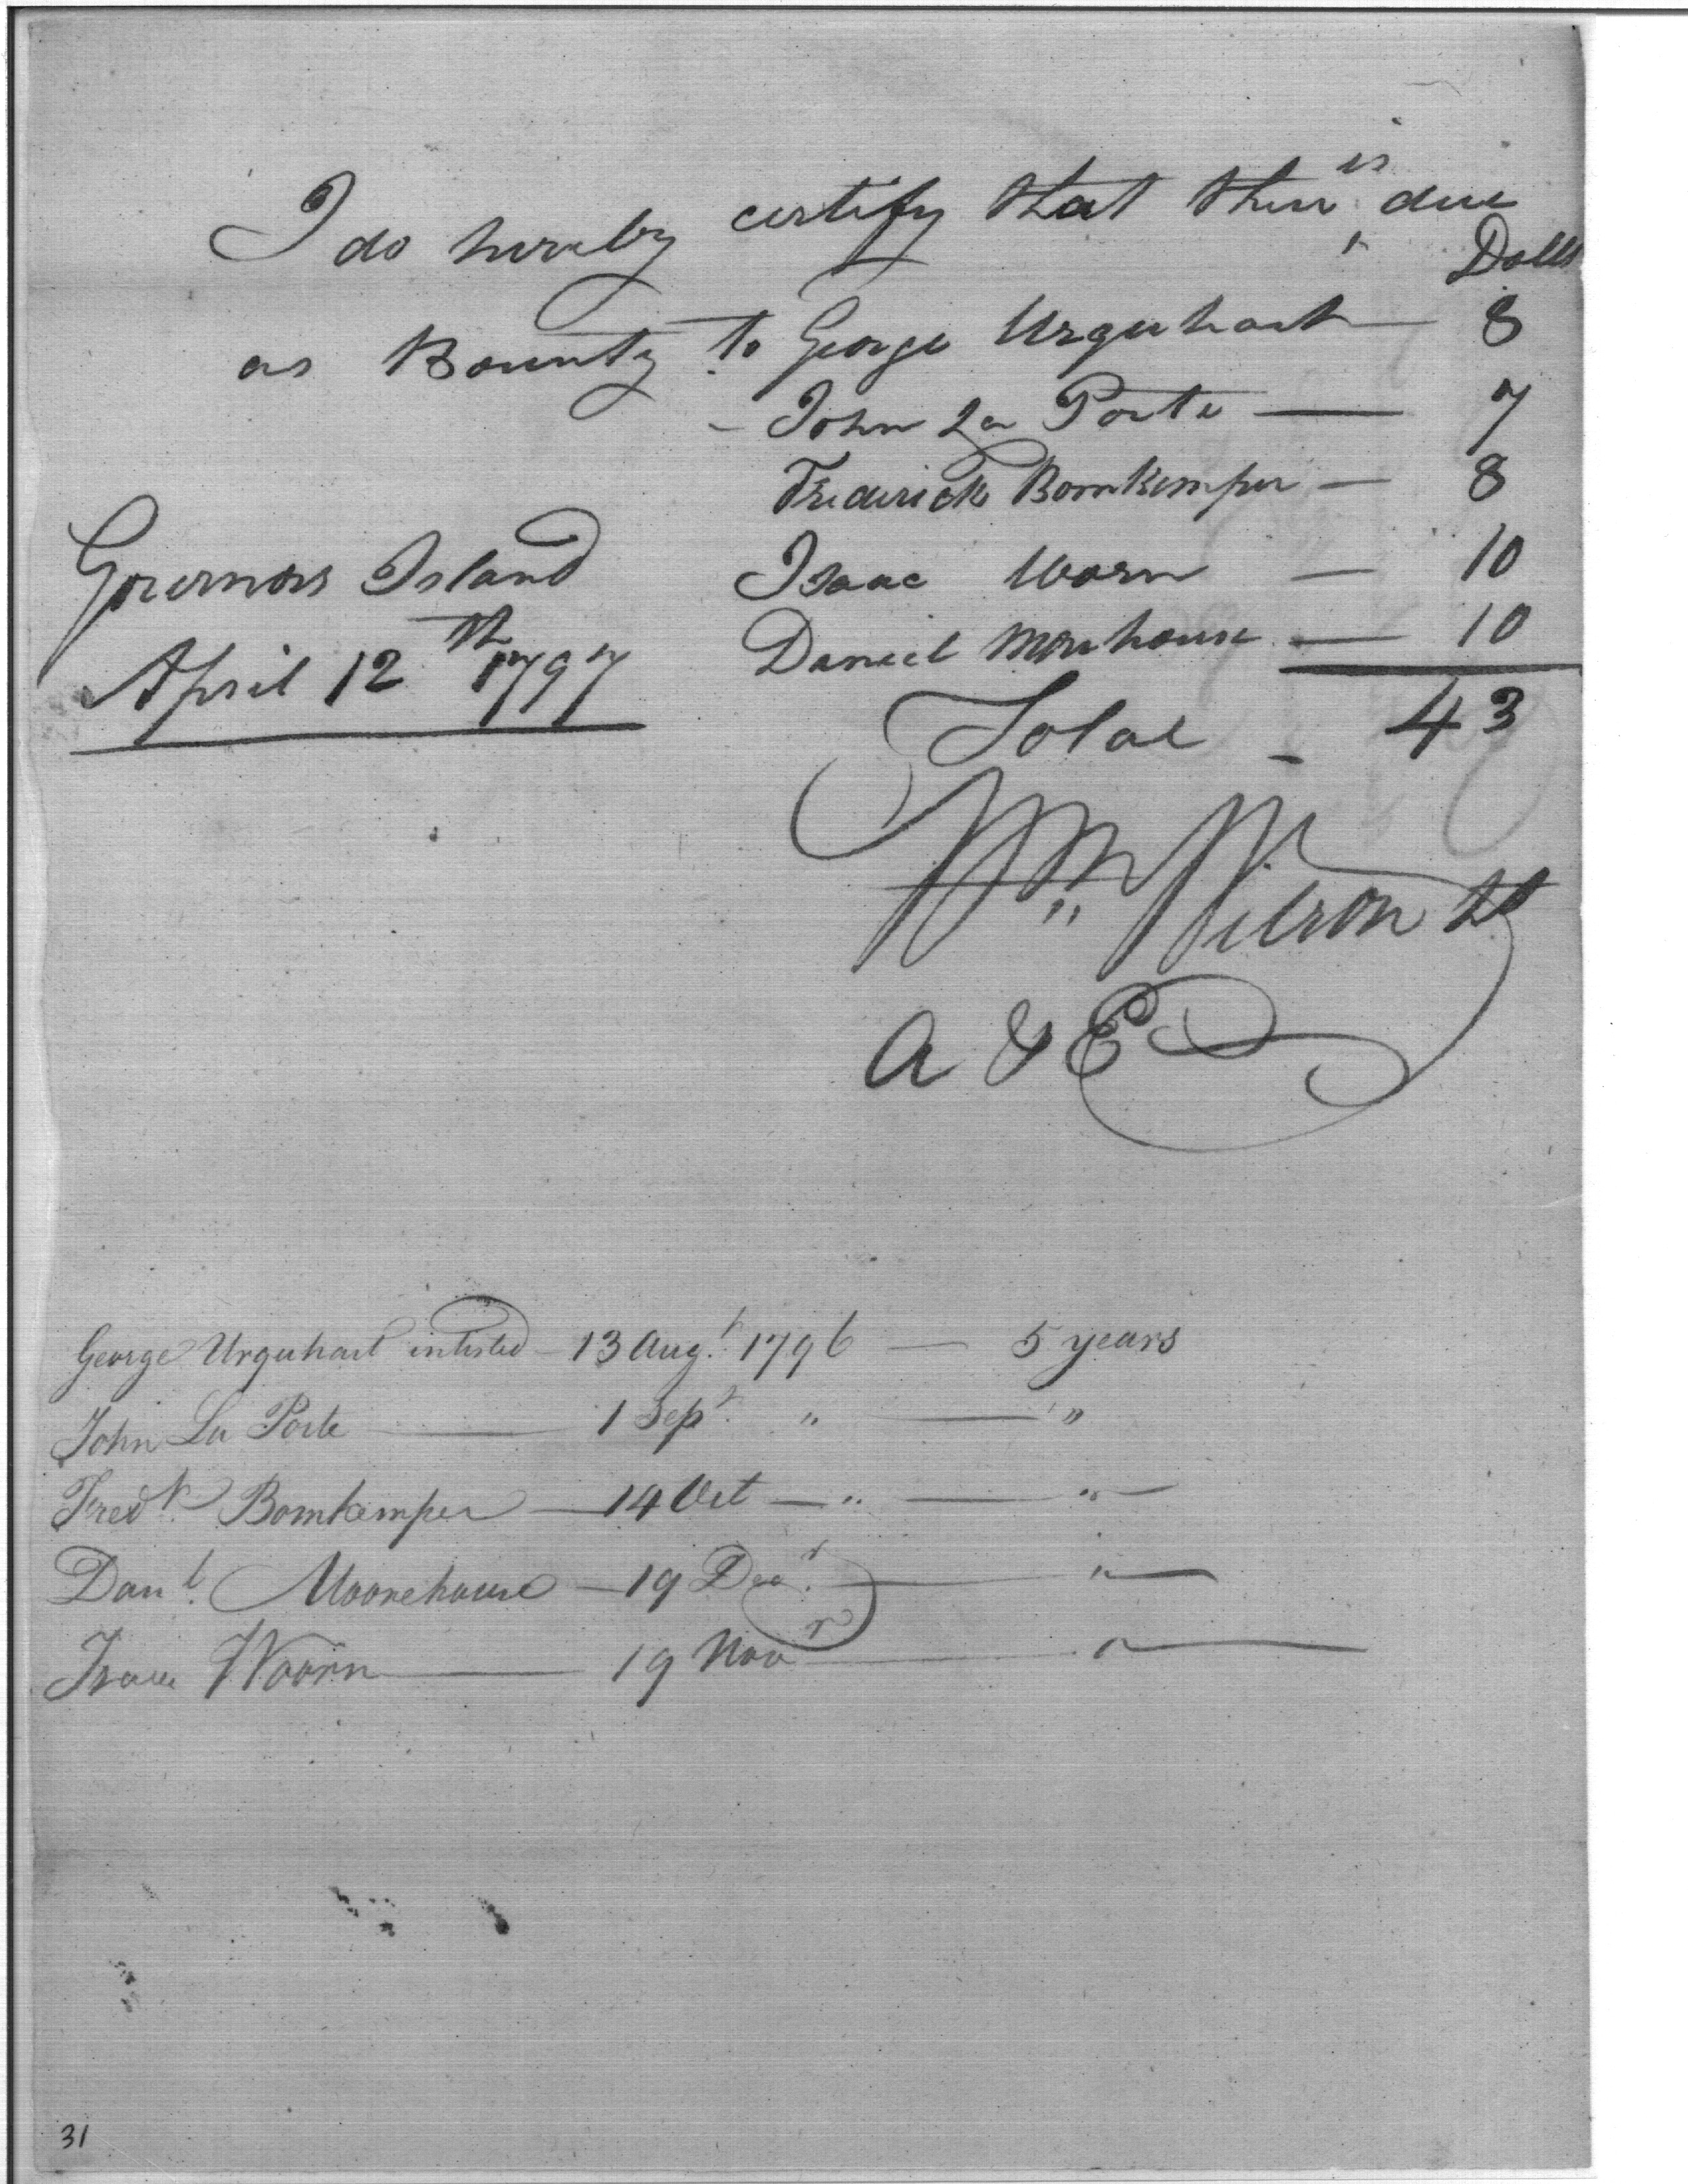 I do hereby certify that there is due
Dolls
as Bounty to George Urquhart — 8
John La Porte — 7
Frederick Bomkemper — 8
Isaac Worn — 10
Daniel Morehouse — 10
Governors Island
April 12th 1797
Total - 43
Wm Wilson Lt
A & E
George Urquhart inlisted — 13 Augt. 1796 — 5 years
John La Porte — 1 Sept. " — "
Fredk. Bomkemper — 14 Oct — " — "
Danl. Moorehouse — 19 Decr. — "
Isaac Woorn — 19 Novr — "
31